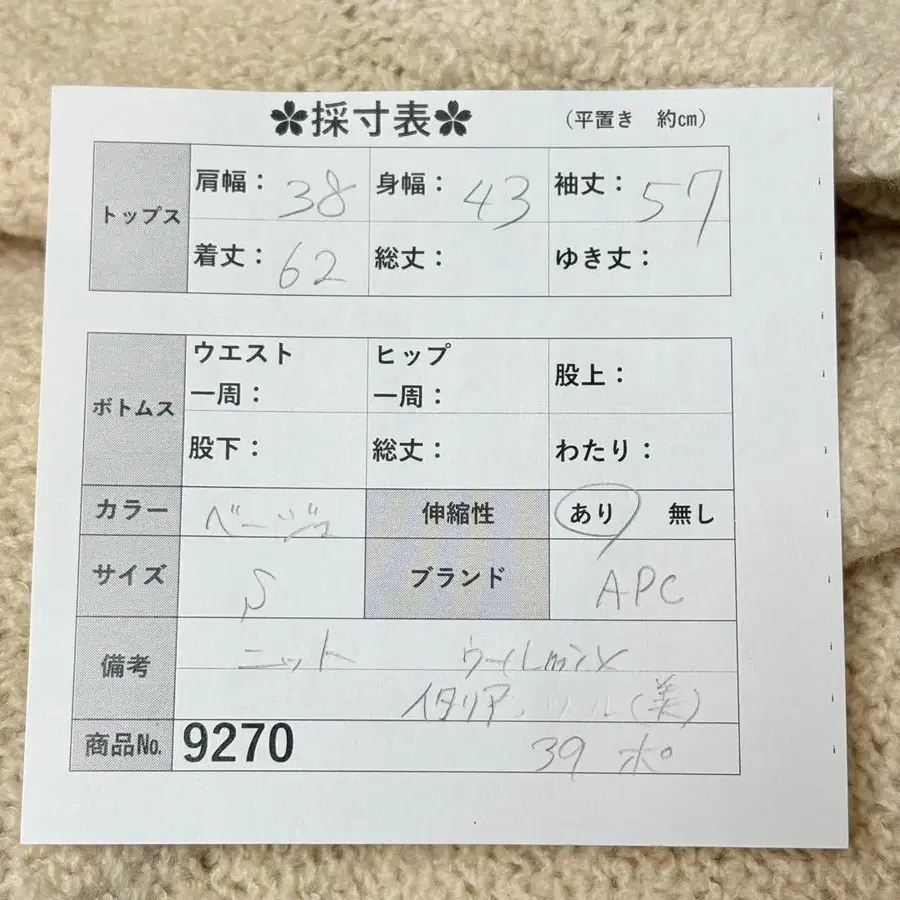 ✿採寸表✿ （平置き 約㎝）
トップス 肩幅： 38 身幅： 43 袖丈： 57
着丈： 62 総丈： ゆき丈：
ボトムス ウエスト一周： ヒップ一周： 股上：
股下： 総丈： わたり：
カラー ベージュ 伸縮性 あり 無し
サイズ S ブランド APC
備考 ニット ウールmix
イタリア (美)
商品№ 9270 39 ポ